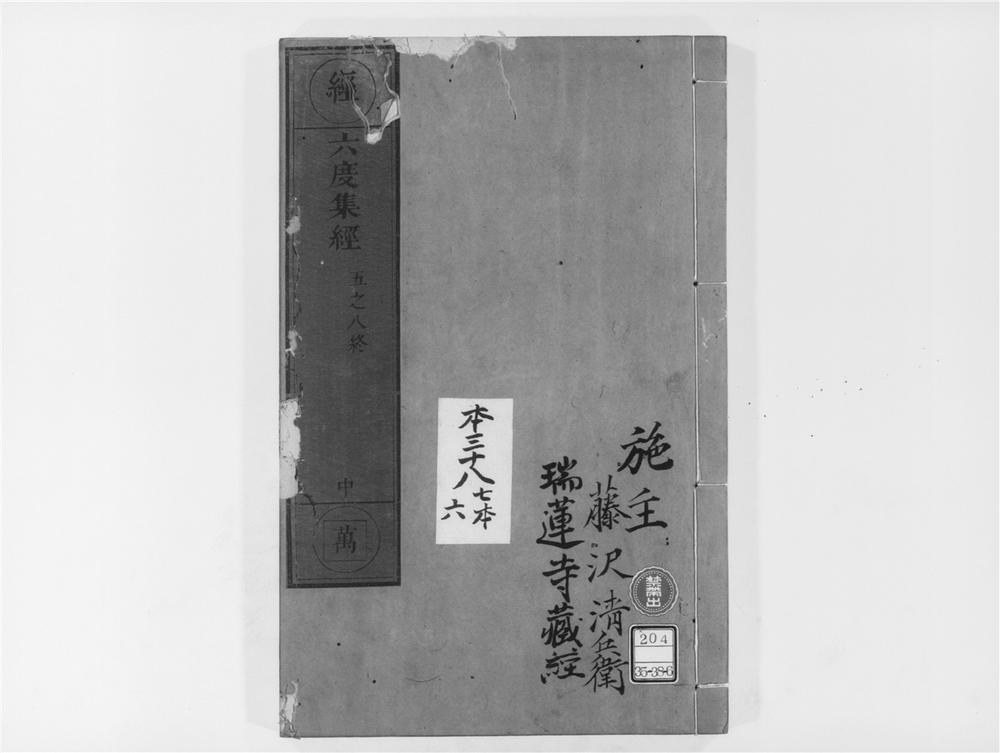 施主
藤沢清兵衛
瑞蓮寺藏經
禁出
204
35-38-6
本三十八
七本
六
經
六度集經
五之八終
中
萬